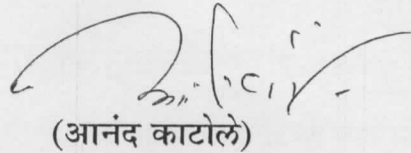 (आनंद काटोले)